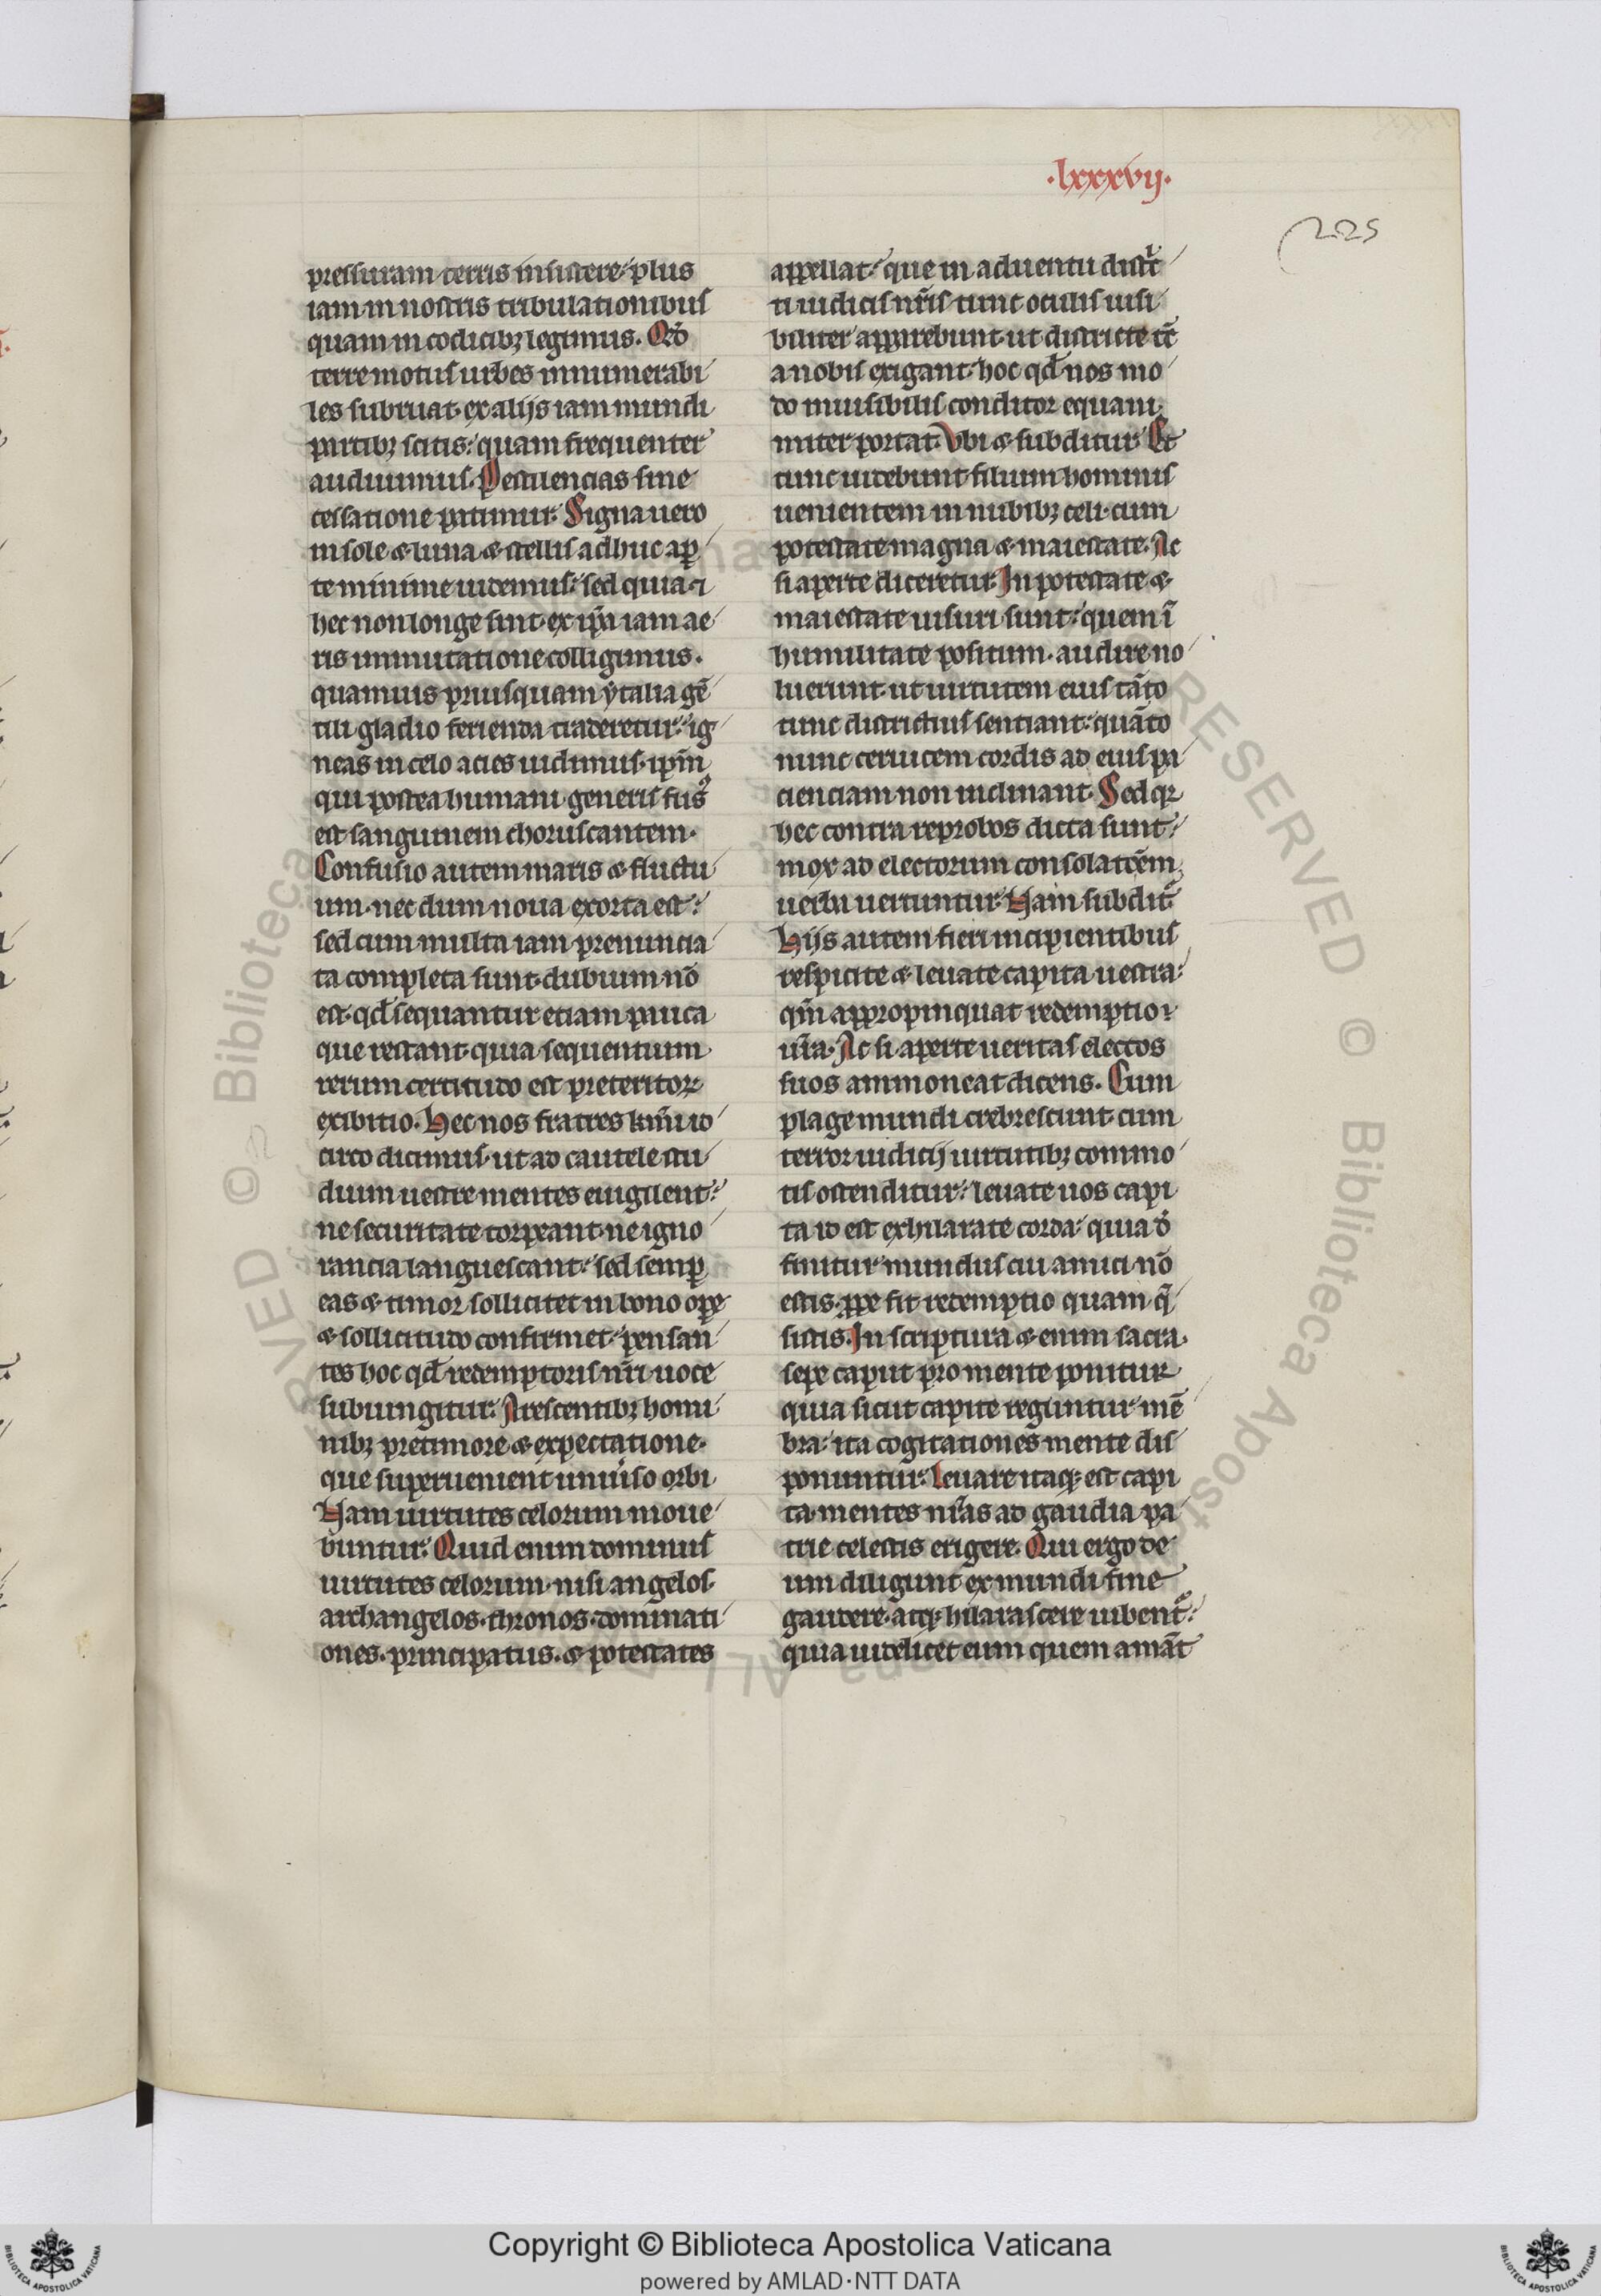 ·lxxxvij·
225
pressuram terris insistere plus
iam in nostris tribulationibus
quam in codicibꝫ legimus. Qđ
terre motus urbes innumerabi
les subruat ex alijs iam mundi
partibꝫ scitis: quam frequenter
audiuimus. Pestilencias sine
cessatione patimur. Signa uero
in sole & luna & stellis adhuc aꝑ
te minime uidemus: sed quia ⁊
hec non longe sint ex ip̄a iam ae
ris inmutatione colligimus.
quamuis priusquam ytalia gē
tili gladio ferienda traderetur: ig
neas in celo acies uidimus. ip̄m
qui postea humani generis fusꝰ
est sanguinem choruscantem.
Confusio autem maris & fluctu
um. nec dum noua exorta est:
sed cum multa iam prenuncia
ta completa sunt. dubium nō
est. qđ sequantur etiam pauca
que restant. quia sequentium
rerum certitudo est preteritoꝝ
exibitio. Hec nos fratres kr̄mi id
circo dicimus. ut ad cautele stu
dium uestre mentes euigilent:
ne securitate torpeant. ne igno
rancia languescant: sed semꝑ
eas & timor sollicitet in bono oꝑe
& sollicitudo confirmet. pensan
tes hoc qđ redemptoris nr̄i uoce
subiungitur. Arescentibꝫ homi
nibꝫ pre timore & expectatione.
que superuenient uniu̾so orbi
Nam uirtutes celorum moue
buntur. Quid enim dominus
uirtutes celorum. nisi angelos.
archangelos. thronos. dominati
ones. principatus. & potestates
appellat: que in aduentu distͥc
ti iudicis nr̄is tunc oculis uisi
biliter apparebunt. ut districte tc̄
a nobis exigant. hoc qđ nos mo
do inuisibilis conditor equani
miter portat. Vbi & subditur. Et
tunc uidebunt filium hominis
uenientem in nubibꝫ celi. cum
potestate magna & maiestate. Ac
si aperte diceretur. In potestate &
maiestate uisuri sunt: quem ī
humilitate positum. audire no
luerunt. ut uirtutem eius tāto
tunc districtius sentiant: quāto
nunc ceruicem cordis ad eius pa
cienciam non inclinant. Sed qꝛ
hec contra reprobos dicta sunt:
mox ad electorum consolatōem
uerba uertuntur. Nam subdit᷑
Hijs autem fieri incipientibus
respicite & leuate capita uestra:
qm̄ appropinquat redemptio
ur̄a. Ac si aperte ueritas electos
suos ammoneat dicens. Cum
plage mundi crebrescunt. cum
terror iudicij uirtutibꝫ commo
tis ostenditur: leuate uos capi
ta id est exhilarate corda: quia dͫ
finitur mundus cui amici nō
estis. ꝓpe fit redemptio quam q̄
sistis. In scriptura & enim sacra.
sepe caput pro mente ponitur
quia sicut capite reguntur mē
bra: ita cogitationes mente dis
ponuntur. Leuare itaqꝫ est capi
ta. mentes nr̄as ad gaudia pa
trie celestis erigere. Qui ergo de
um diligunt ex mundi fine
gaudere. atqꝫ hilarascere iubent᷑:
quia uidelicet eum quem amāt
Copyright © Biblioteca Apostolica Vaticana
powered by AMLAD·NTT DATA